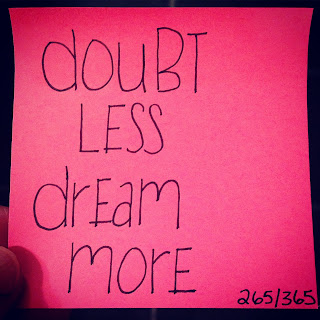 douBT
LESS
drEam
morE
265/365